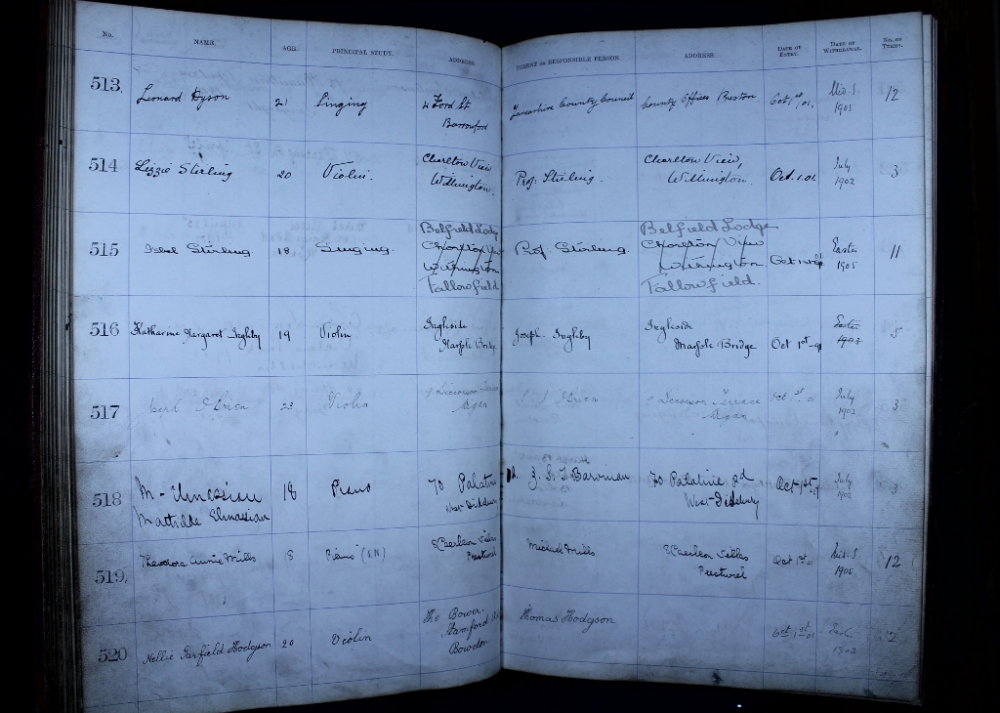 No. NAME. AGE. PRINCIPAL STUDY. ADDRESS. PARENT OR RESPONSIBLE PERSON. ADDRESS. DATE OF ENTRY. DATE OF WITHDRAWAL. No. OF TERMS.
513. Leonard Dyson 21 Singing 4 Ford St Barrowford Lancashire County Council County Offices Preston Oct 1st, 01. Mids. 1905 12
514 Lizzie Stirling 20 Violin. Charlton View Withington. Prof. Stirling. Charlton View, Withington. Oct. 1. 01. July 1902 3
515 Isabel Stirling 18 Singing. Belfield Lodge
Chorlton View
Withington
Fallowfield Prof. Stirling. Belfield Lodge
Chorlton View
Withington
Fallowfield. Oct Easter 1905 11
516 Katharine Margaret Ingleby 19 Violin Ingleside
Marple Bridge Joseph Ingleby Ingleside
Marple Bridge Oct 1st 5
517 O'Brien 23 Violin O'Brien Terrace July 1902 3
518 M. Elmassian 18 Piano 70 Palatine Rd West Didsbury 70 Palatine Rd
West Didsbury Oct 1st July 1902 3
Mathilde Elmassian
519. Theodora Annie Mills 8 Piano Villas
Prestwich Michael Mills Villas
Prestwich Oct 1st Mids. 1905 12
520 Nellie Garfield Hodgson 20 Violin The Bower
Stamford Rd
Bowdon Thomas Hodgson Oct 1st 01 1902 2